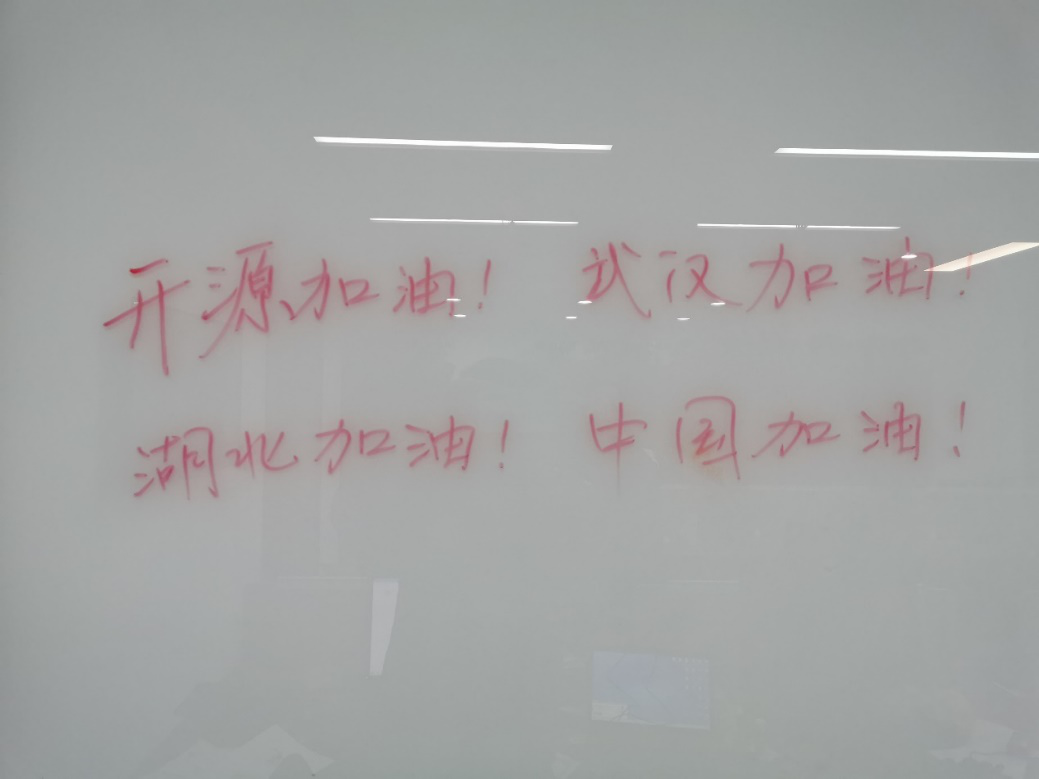 开源加油！ 武汉加油！
湖北加油！ 中国加油！